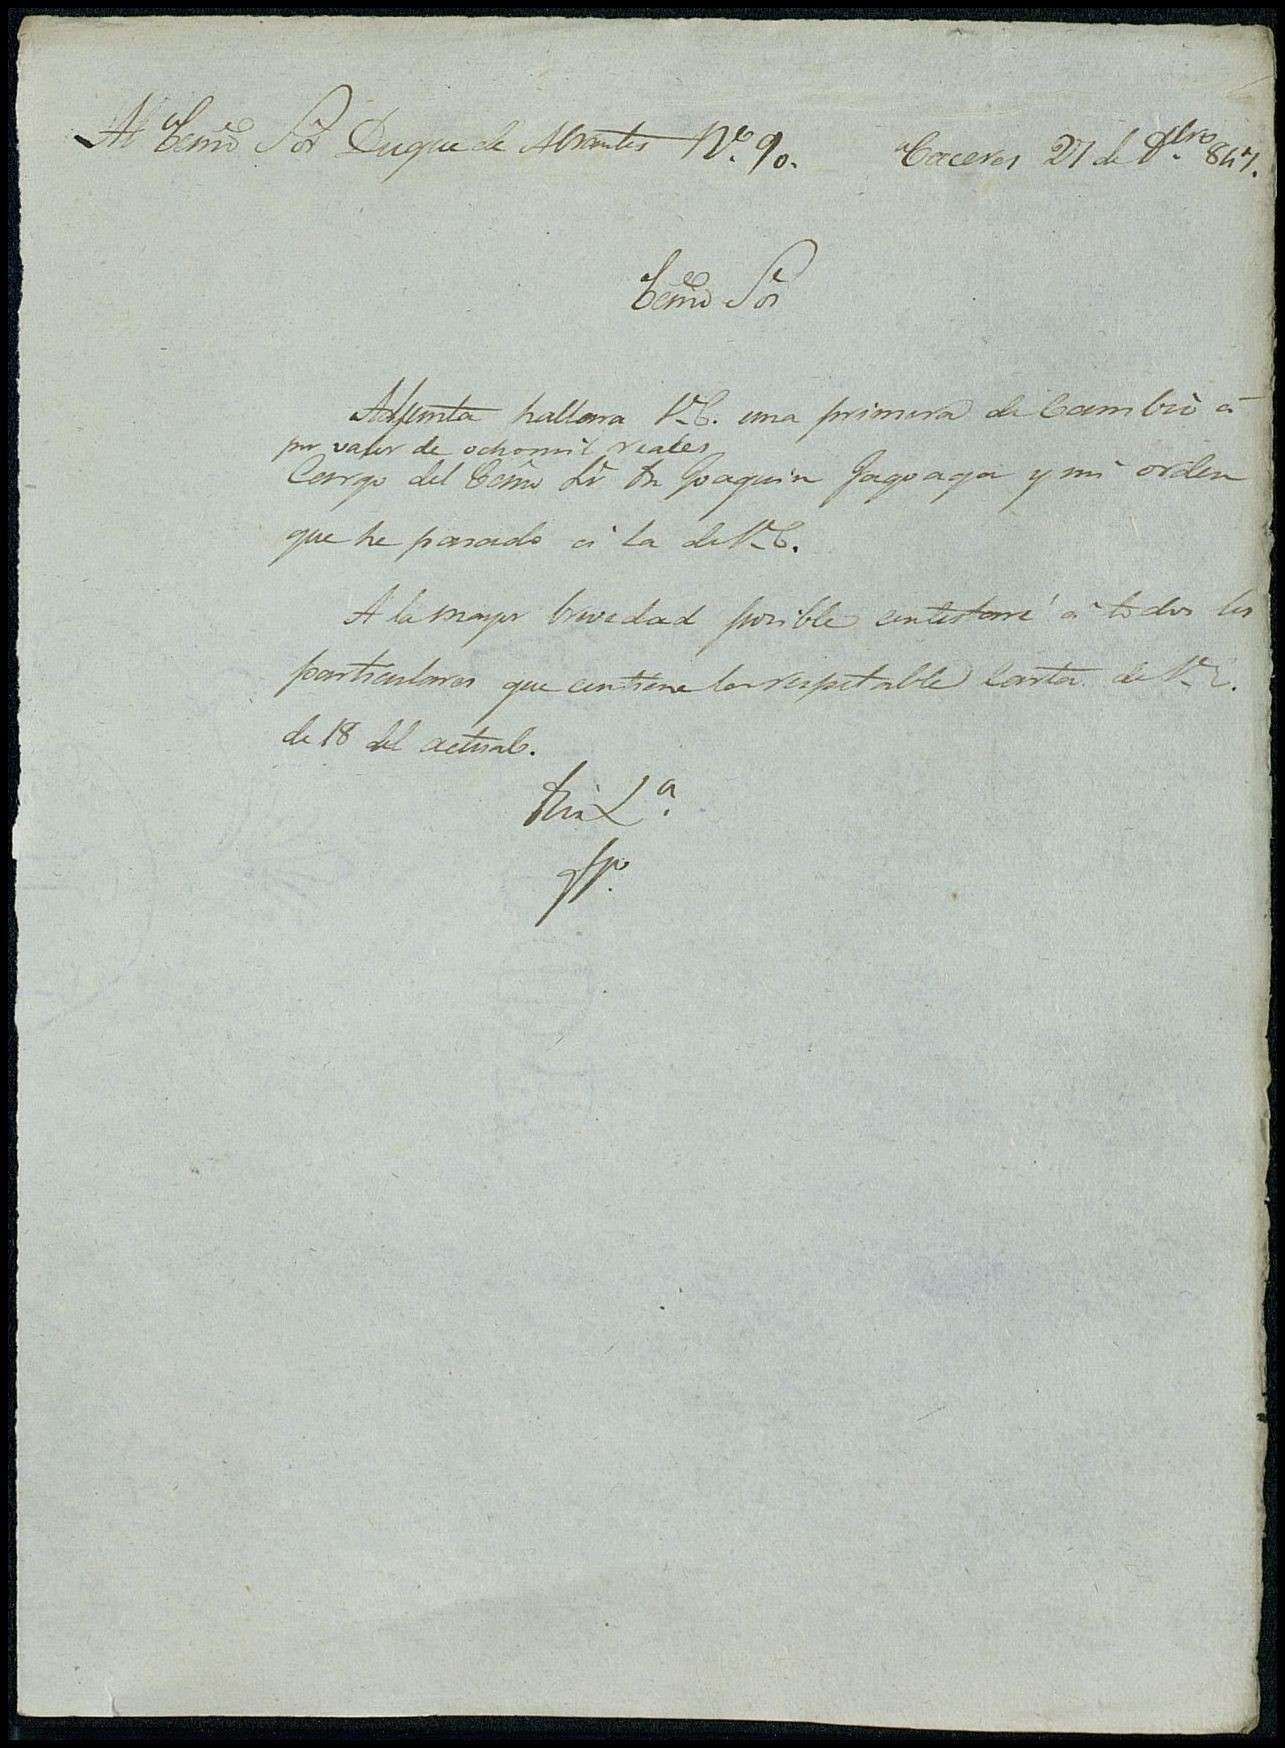 Al Exmo Sor Duque de Abrantes Nº 90. Caceres 27 de 8bre 847.
Exmo Sor
Adjunta hallara V.E. una primera de Cambio á
por valor de ochomil reales
Cargo del Exmo Sr Dn Joaquin Fagoaga y mi orden
que he pasado á la de V.E.
A la mayor brevedad posible contestaré á todos los
particulares que contiene la respetable Carta de V.E.
de 18 del actual.